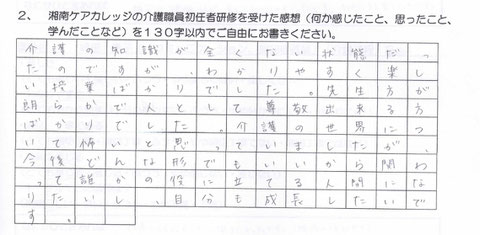 2、 湘南ケアカレッジの介護職員初任者研修を受けた感想（何か感じたこと、思ったこと、
学んだことなど）を130字以内でご自由にお書きください。
介護の知識が全くない状態だっ
たのですが、わかりやすく楽し
い授業ばかりでした。先生方が
朗らかで人として尊敬出来る方
ばかりでした。介護の世界につ
いて怖いと思っていましたが、
今後どんな形でもいいから関わ
って誰かの役に立てる人間にな
りたいし、自分も成長したいで
す。